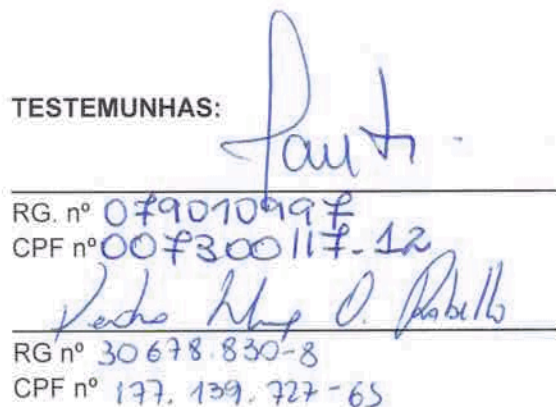 TESTEMUNHAS:
RG. nº 079010997
CPF nº 007300117-12
O. Rabello
RG nº 30678.830-8
CPF nº 177.139.727-65